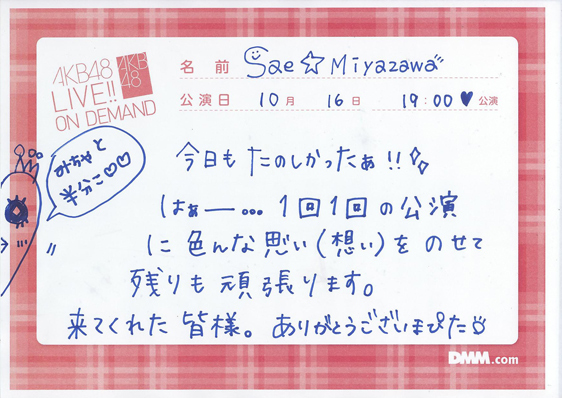 AKB48
LIVE!!
ON DEMAND
AKB
48
名前 Sae☆Miyazawa
公演日 10月 16日 19:00♥公演
みちゃと
半分こ♡♡
今日も たのしかったぁ!!
はぁー… 1回1回の公演
に 色んな思い(想い)を のせて
残りも 頑張ります。
来てくれた 皆様。ありがとうございまぴた
DMM.com